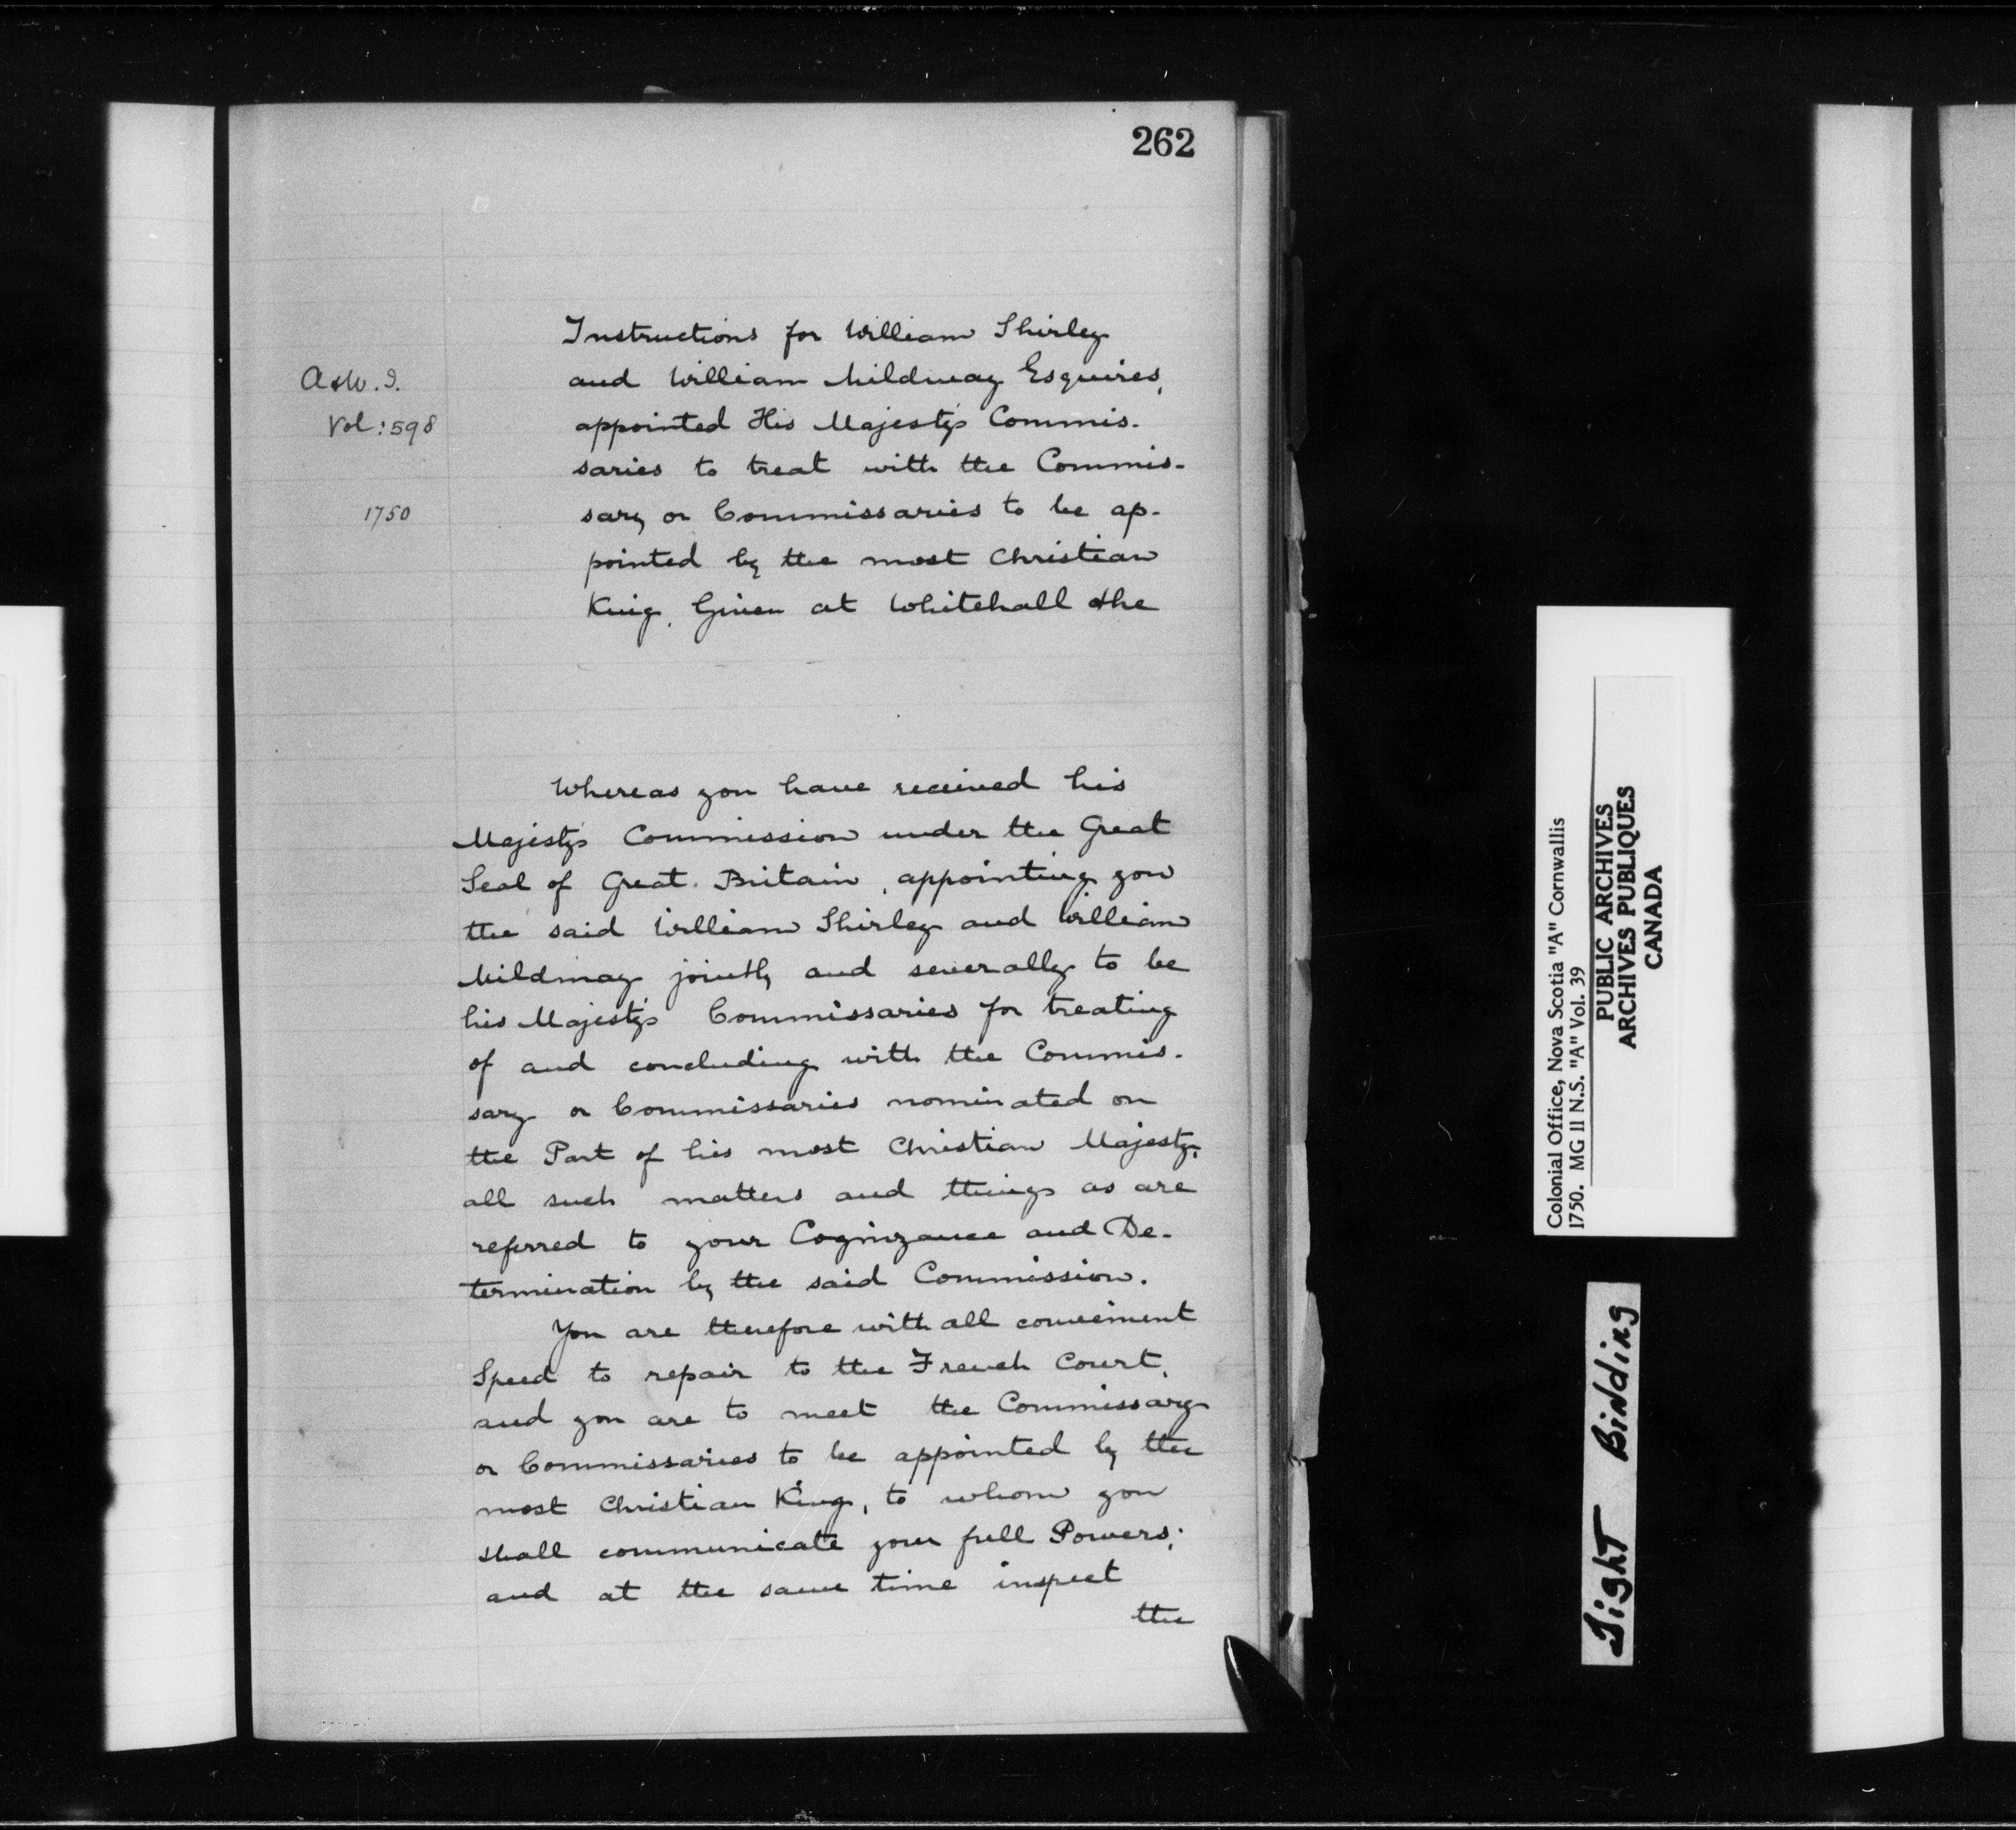 262
Instructions for William Shirley
and William Mildmay Esquires,
appointed His Majesty's Commis-
saries to treat with the Commis-
sary or Commissaries to be ap-
pointed by the most Christian
King. Given at Whitehall the
A & W. I.
Vol: 598
1750
Whereas you have received his
Majesty's Commission under the Great
Seal of Great Britain, appointing you
the said William Shirley and William
Mildmay jointly and severally to be
his Majesty's Commissaries for treating
of and concluding with the Commis-
sary or Commissaries nominated on
the Part of his most Christian Majesty,
all such matters and things as are
referred to your Cognizance and De-
termination by the said Commission.
You are therefore with all convenient
Speed to repair to the French Court,
and you are to meet the Commissary
or Commissaries to be appointed by the
most Christian King, to whom you
shall communicate your full Powers;
and at the same time inspect
the
Colonial Office, Nova Scotia "A" Cornwallis
1750. MG 11 N.S. "A" Vol. 39
PUBLIC ARCHIVES
ARCHIVES PUBLIQUES
CANADA
Tight Binding